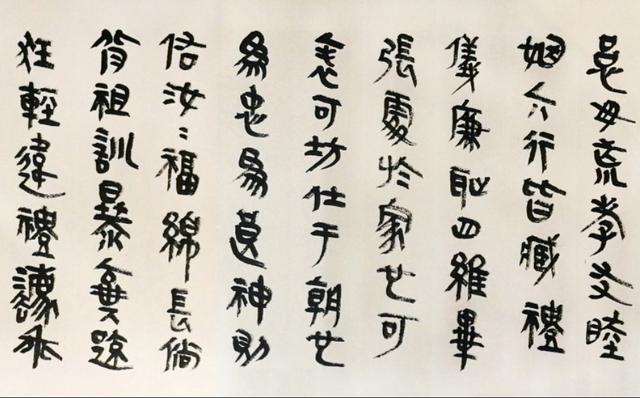 怠毋荒孝友睦
姻六行皆臧禮
儀廉恥四維畢
張處於家也可
表可坊仕于朝也
為忠為良神則
佑汝〻福綿長倘
背祖訓暴棄疏
狂輕違禮